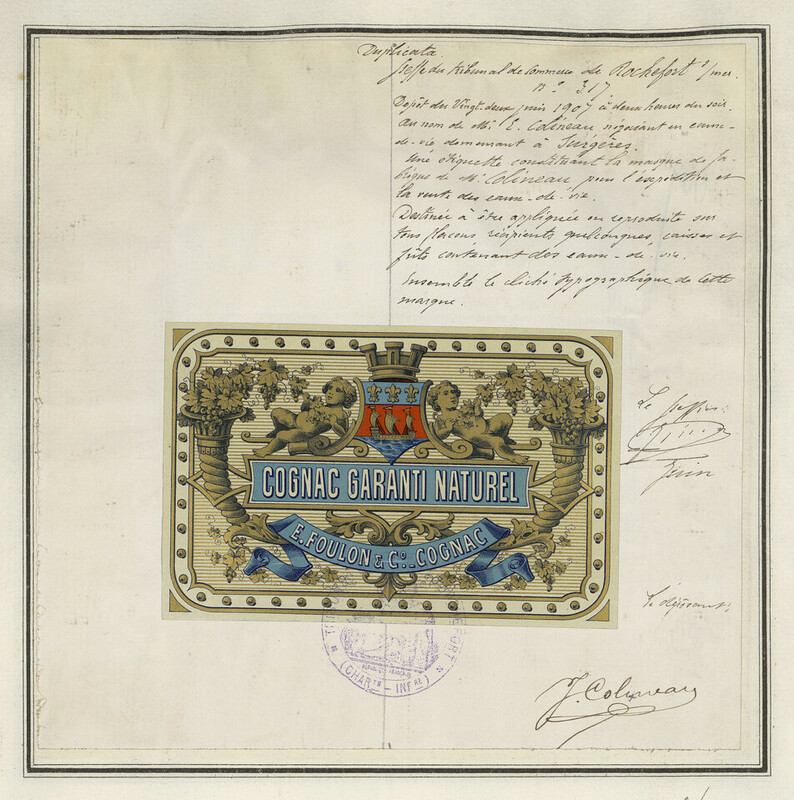 Duplicata
Greffe du tribunal de commerce de Rochefort s/mer.
N° 317
Dépôt du Vingt-deux juin 1907 à deux heures du soir.
Au nom de Mr E. Colineau négociant en eaux-
de-vie demeurant à Surgères.
Une étiquette constituant la marque de fa-
brique de Mr Colineau pour l'expédition et
la vente des eaux-de-vie.
Destinée à être appliquée ou reproduite sur
tous flacons récipients quelconques, caisses et
fûts contenant des eaux-de-vie.
Ensemble le cliché typographique de cette
marque.
COGNAC GARANTI NATUREL
E. FOULON & Co. _ COGNAC
Le Greffier
Le déposant:
(CHARte - INFre)
Colineau